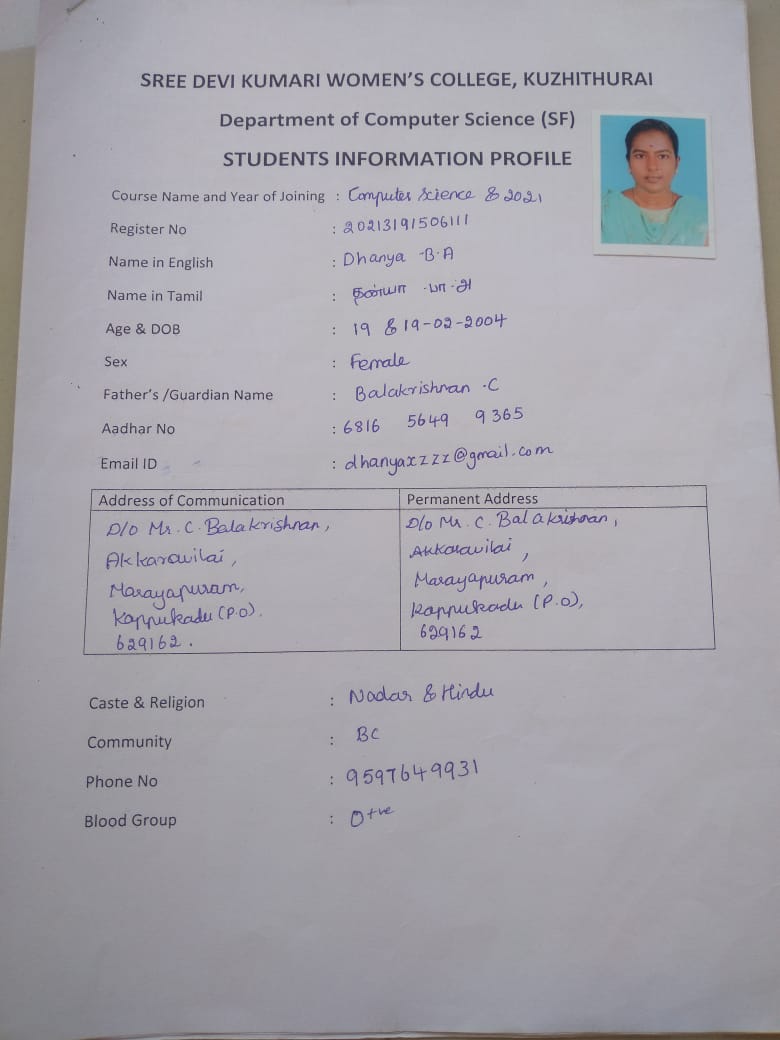 SREE DEVI KUMARI WOMEN'S COLLEGE, KUZHITHURAI
Department of Computer Science (SF)
STUDENTS INFORMATION PROFILE
Course Name and Year of Joining : Computer Science & 2021
Register No : 20213191506111
Name in English : Dhanya .B.A
Name in Tamil : தன்யா .பா.அ
Age & DOB : 19 & 19-02-2004
Sex : Female
Father's /Guardian Name : Balakrishnan .C
Aadhar No : 6816 5649 9365
Email ID : dhanyaxzzz@gmail.com
Address of Communication Permanent Address
D/o Mr. C. Balakrishnan, D/o Mr. C. Balakrishnan,
Akkaravilai, Akkaravilai,
Marayapuram, Marayapuram,
Kappukadu (P.O). Kappukadu (P.O),
629162. 629162
Caste & Religion : Nadar & Hindu
Community : BC
Phone No : 9597649931
Blood Group : O+ve